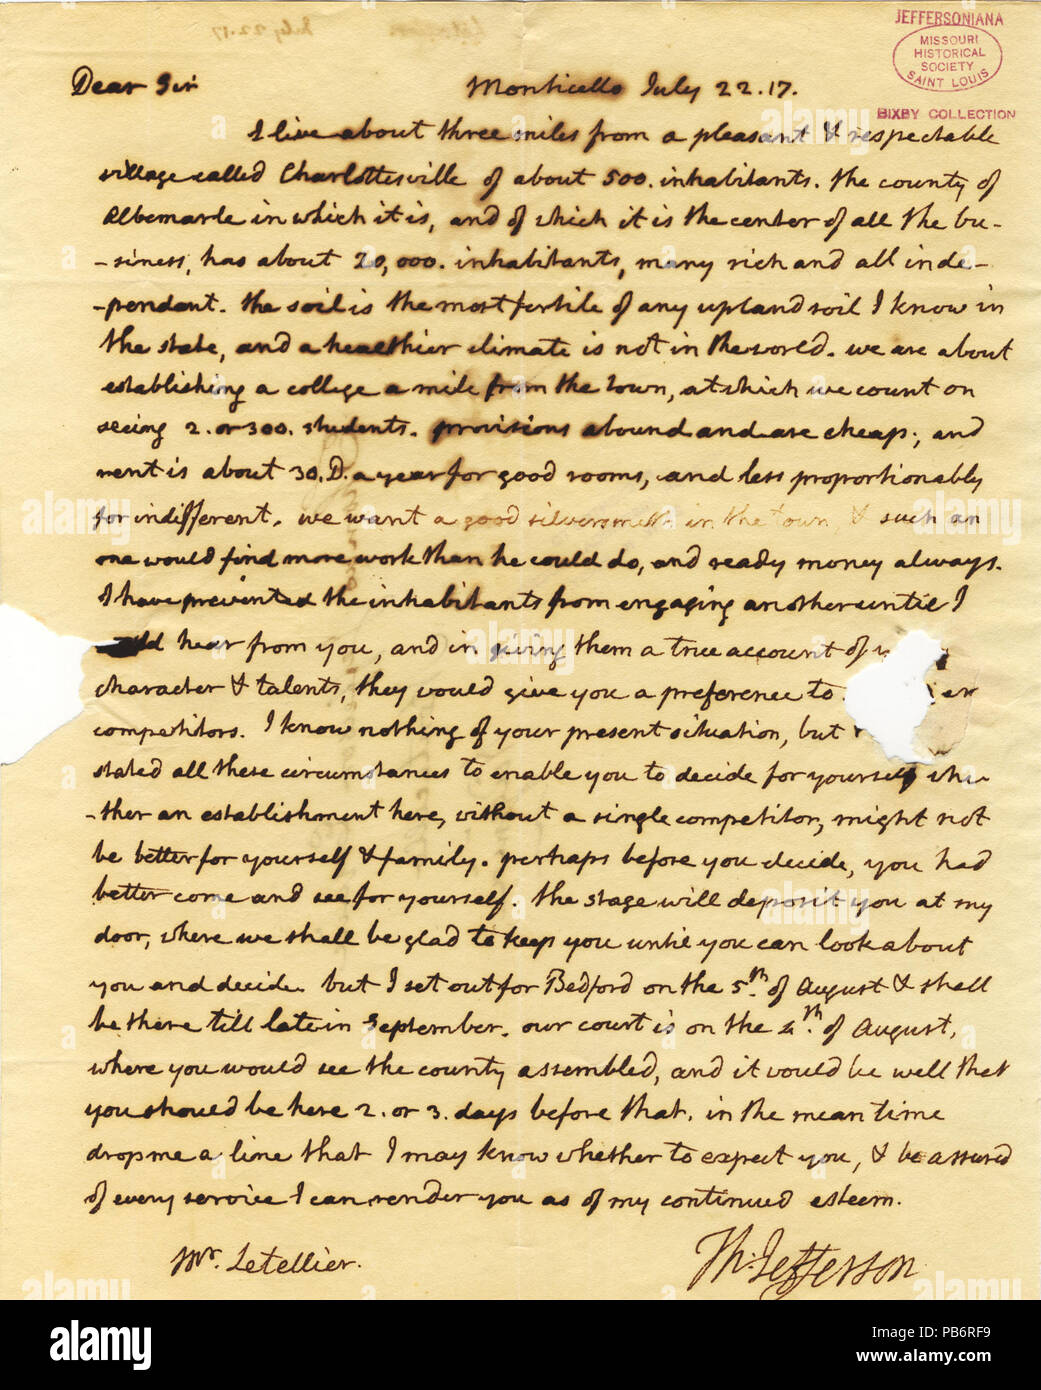 JEFFERSONIANA
MISSOURI
HISTORICAL
SOCIETY
SAINT LOUIS
BIXBY COLLECTION
Dear Sir Monticello July 22.17.
I live about three miles from a pleasant & respectable
village called Charlottesville of about 500. inhabitants. the county of
Albemarle in which it is, and of which it is the center of all the bu-
-siness, has about 20,000. inhabitants, many rich and all inde-
-pendant. the soil is the most fertile of any upland soil I know in
the state, and a healthier climate is not in the world. we are about
establishing a college a mile from the town, at which we count on
seeing 2. or 300. students. provisions abound and are cheap; and
rent is about 30.D. a year for good rooms, and less proportionably
for indifferent. we want a good silversmith in the town, & such an
one would find more work than he could do, and ready money always.
I have prevented the inhabitants from engaging another until I
hear from you, and in giving them a true account of
character & talents, they would give you a preference to
competitors. I know nothing of your present situation, but
stated all these circumstances to enable you to decide for yourself whe
-ther an establishment here, without a single competitor, might not
be better for yourself & family. perhaps before you decide, you had
better come and see for yourself. the stage will deposit you at my
door, where we shall be glad to keep you until you can look about
you and decide. but I set out for Bedford on the 5th. of August & shall
be there till late in September. our court is on the 4th. of August,
where you would see the county assembled, and it would be well that
you should be here 2. or 3. days before that. in the mean time
drop me a line that I may know whether to expect you, & be assured
of every service I can render you as of my continued esteem.
Mr. Letellier. Th: Jefferson
alamy
a
alamy
Image ID: PB6RF9
www.alamy.com